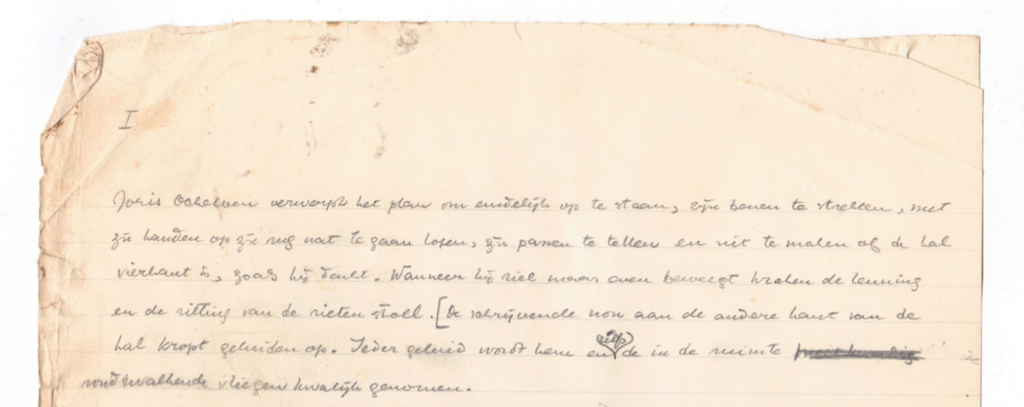 I
Joris Ockeloen verwerpt het plan om eindelijk op te staan, zijn benen te strekken, met
zijn handen op zijn rug wat te gaan lopen, zijn passen te tellen en uit te maken of de hal
vierkant is, zoals hij denkt. Wanneer hij zich maar even beweegt kraken de leuning
en de zitting van de rieten stoel. [De schrijvende non aan de andere kant van de
hal kropt geluiden op. Ieder geluid wordt hem en op de in de ruimte
rondzwalkende vliegen kwalijk genomen.